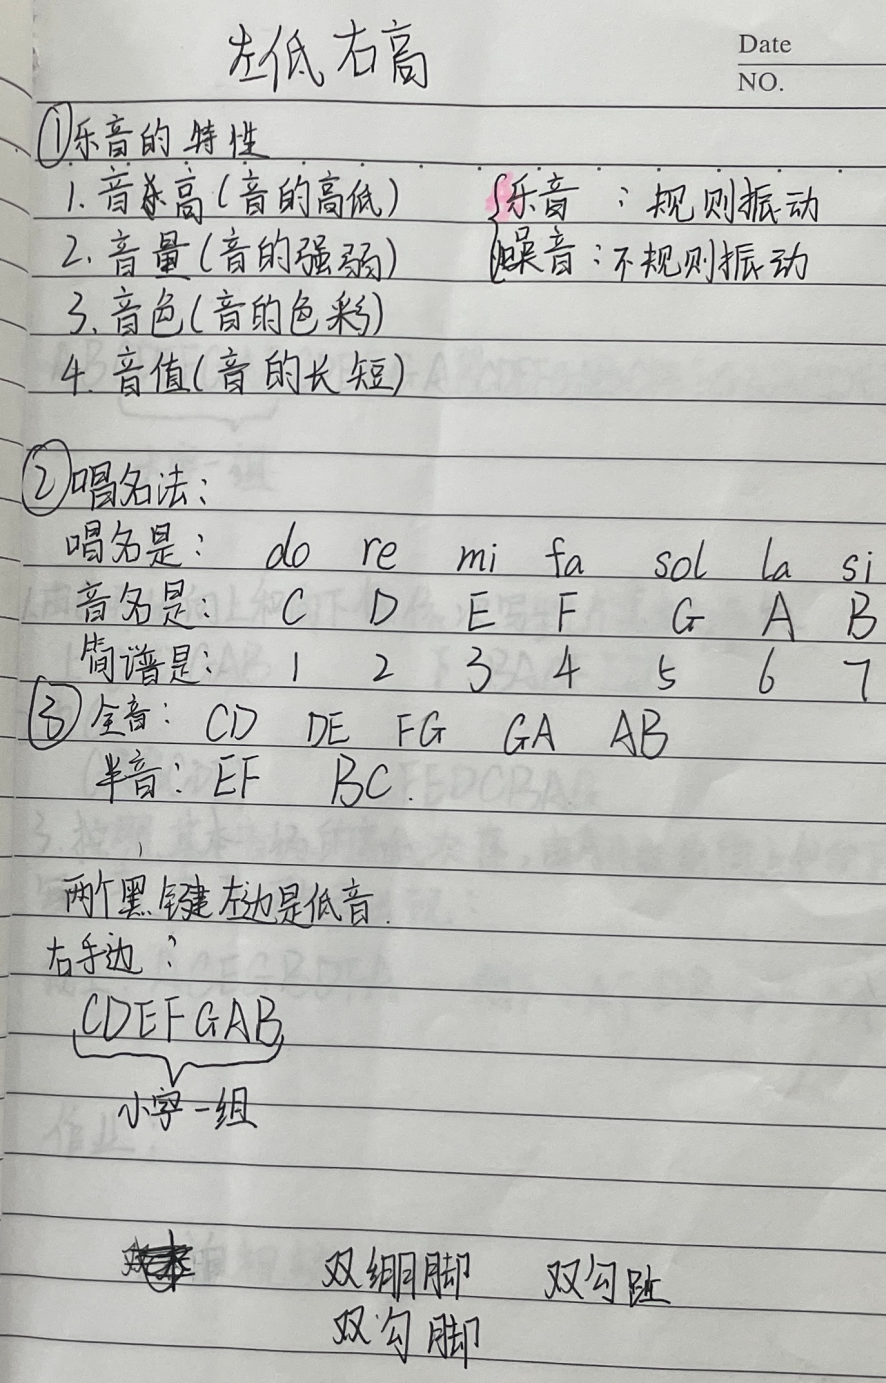 左低右高
Date
NO.
①乐音的特性
1. 音高(音的高低) {乐音：规则振动
2. 音量(音的强弱) {噪音：不规则振动
3. 音色(音的色彩)
4. 音值(音的长短)
②唱名法：
唱名是： do re mi fa sol la si
音名是： C D E F G A B
简谱是： 1 2 3 4 5 6 7
③全音： CD DE FG GA AB
半音：EF BC.
两个黑键左边是低音.
右手边：
CDEFGAB
小字一组
双绷脚 双勾趾
双勾脚